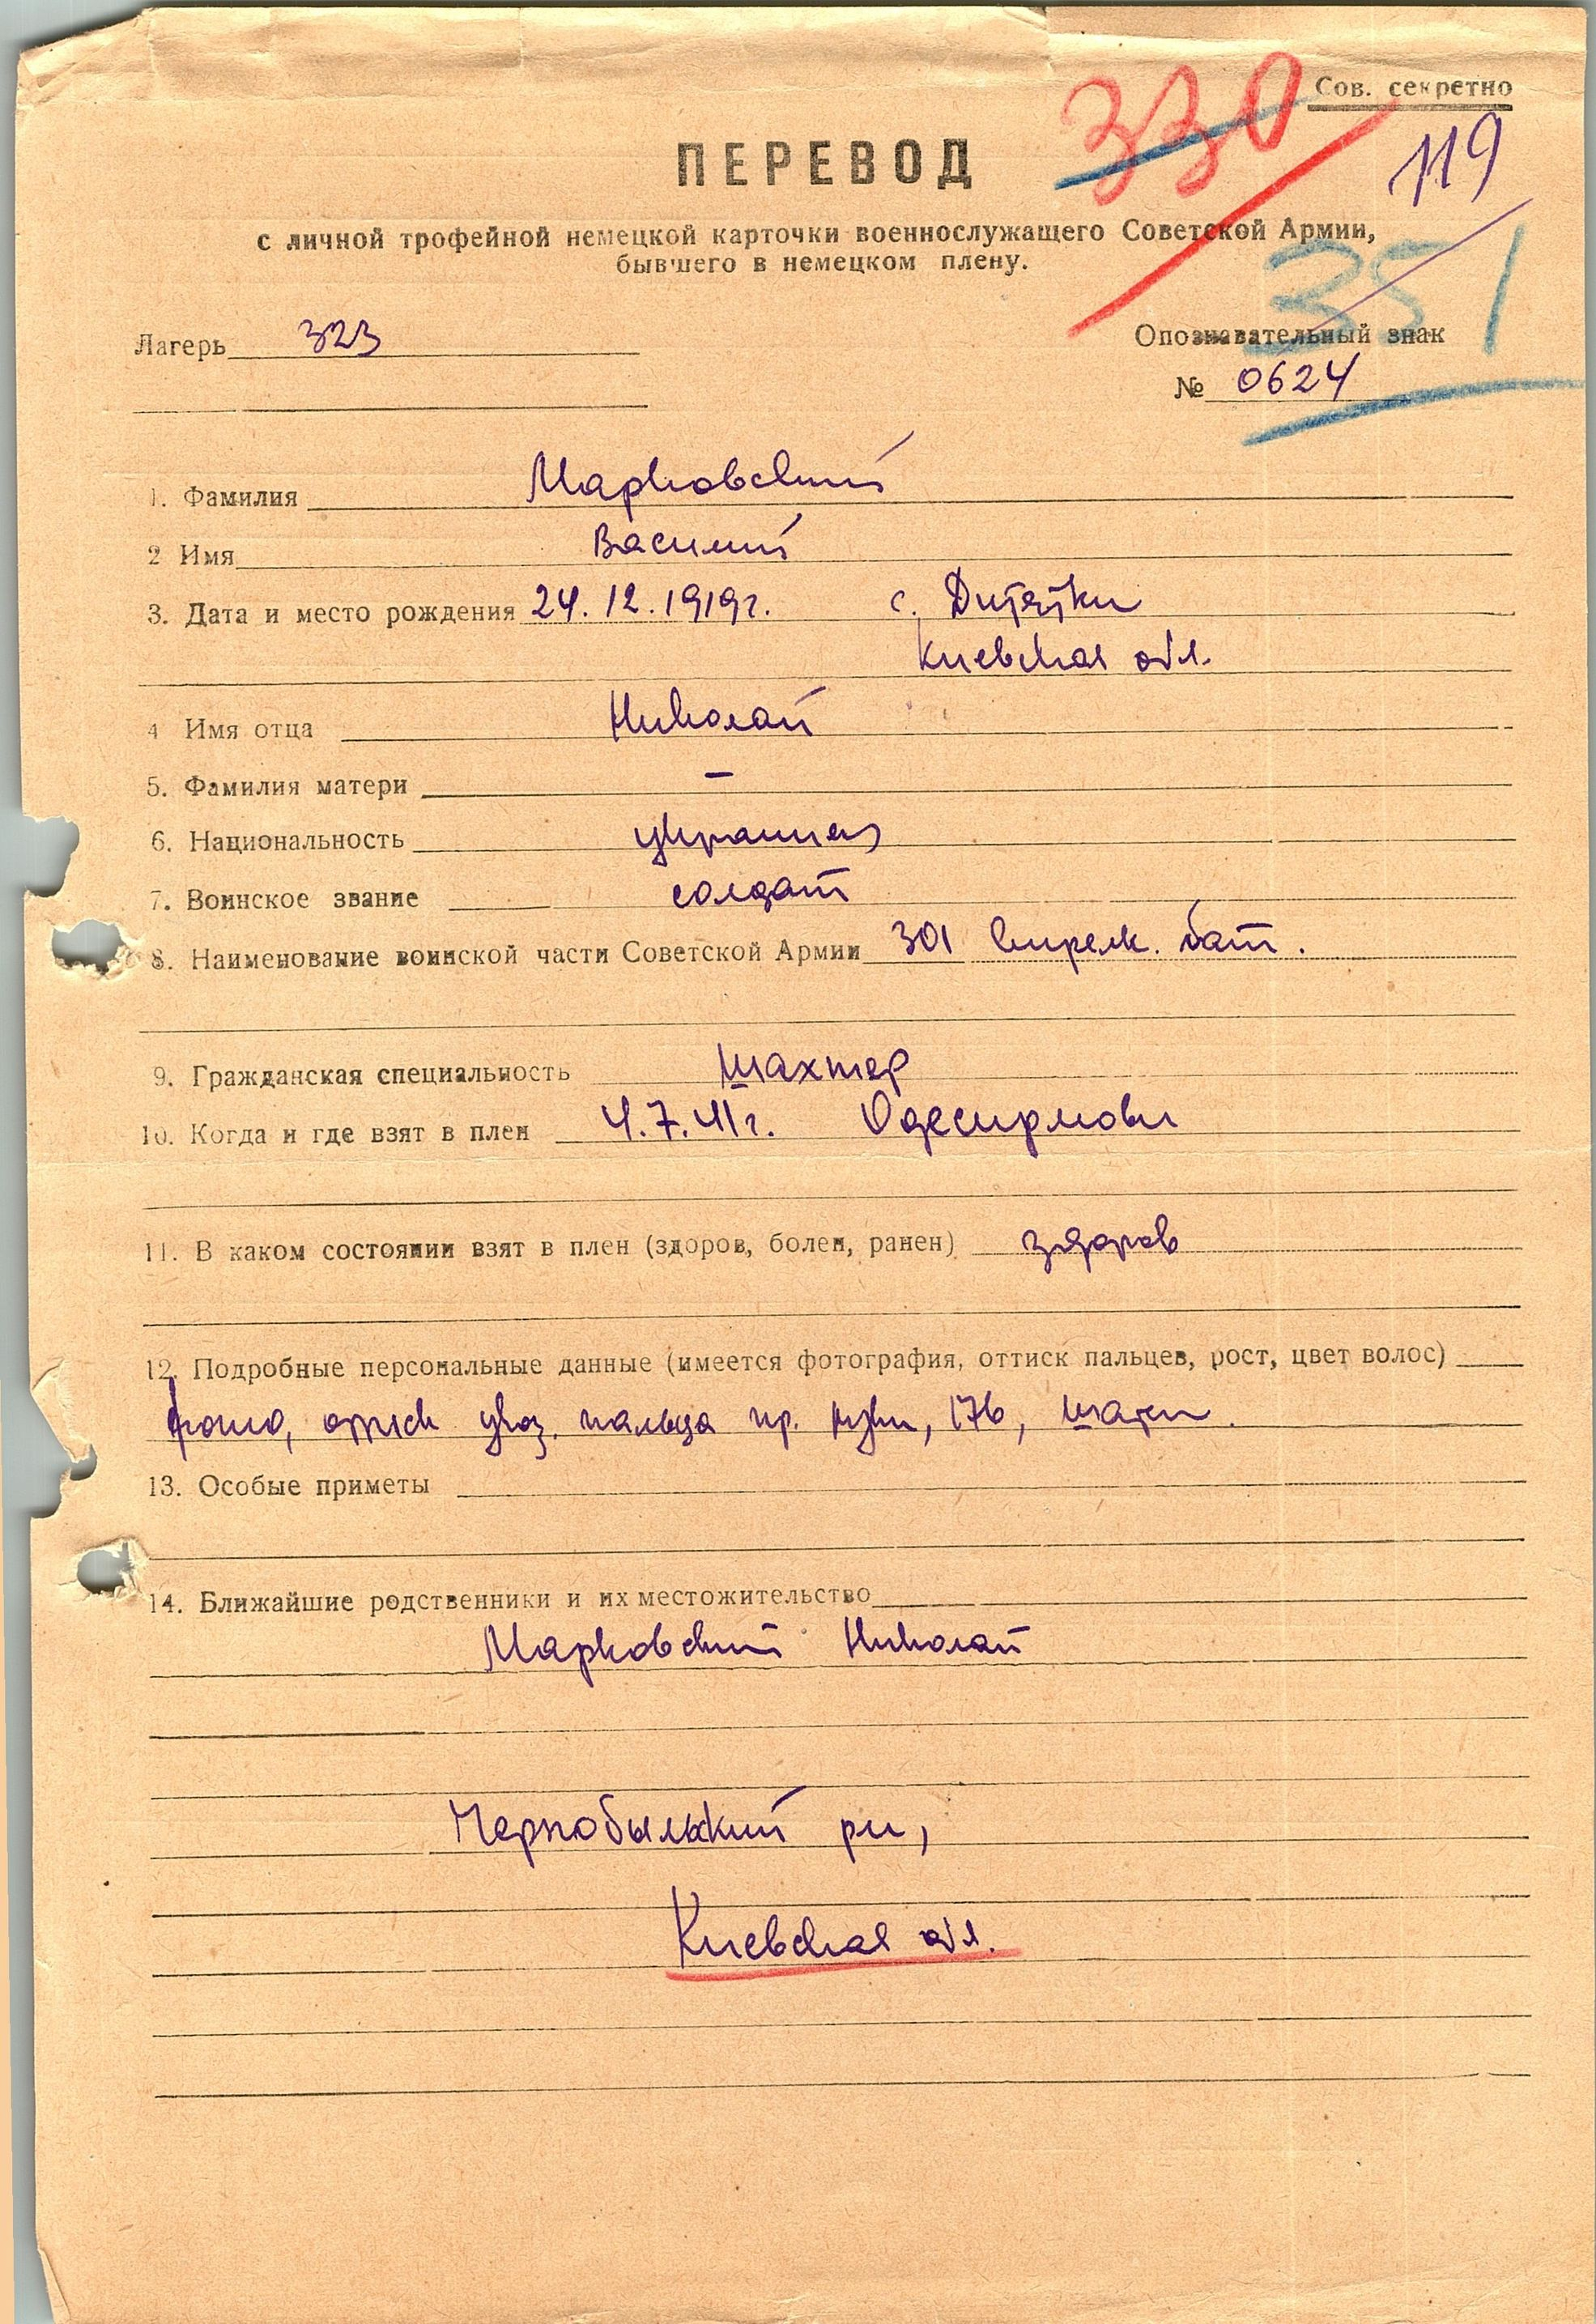 Сов. секретно
330
119
ПЕРЕВОД
с личной трофейной немецкой карточки военнослужащего Советской Армии,
бывшего в немецком плену.
351
Лагерь 323
Опознавательный знак
№ 0624
1. Фамилия Марковский
2 Имя Василий
3. Дата и место рождения 24.12.1919г. с. Дитятки
Киевская обл.
4 Имя отца Николай
5. Фамилия матери —
6. Национальность украинец
7. Воинское звание солдат
8. Наименование воинской части Советской Армии 301 стрелк. бат.
9. Гражданская специальность шахтер
10. Когда и где взят в плен 4.7.41г.
11. В каком состоянии взят в плен (здоров, болен, ранен) здоров
12. Подробные персональные данные (имеется фотография, оттиск пальцев, рост, цвет волос)
фото, оттиск указ. пальца пр. руки, 176, шатен.
13. Особые приметы
14. Ближайшие родственники и их местожительство
Марковский Николай
Чернобыльский рн,
Киевская обл.